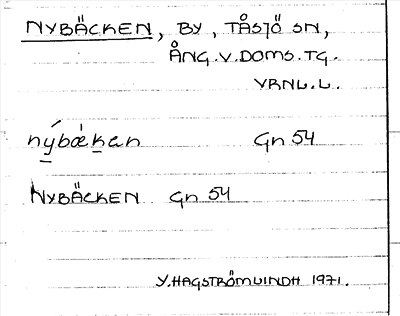 NYBÄCKEN, BY, TÅSJÖ SN,
ÅNG.V.DOMS.TG.
VRNL.L.
nýbækan Gn 54
NYBÄCKEN Gn 54
Y.HAGSTRÖMLINDH 1971.